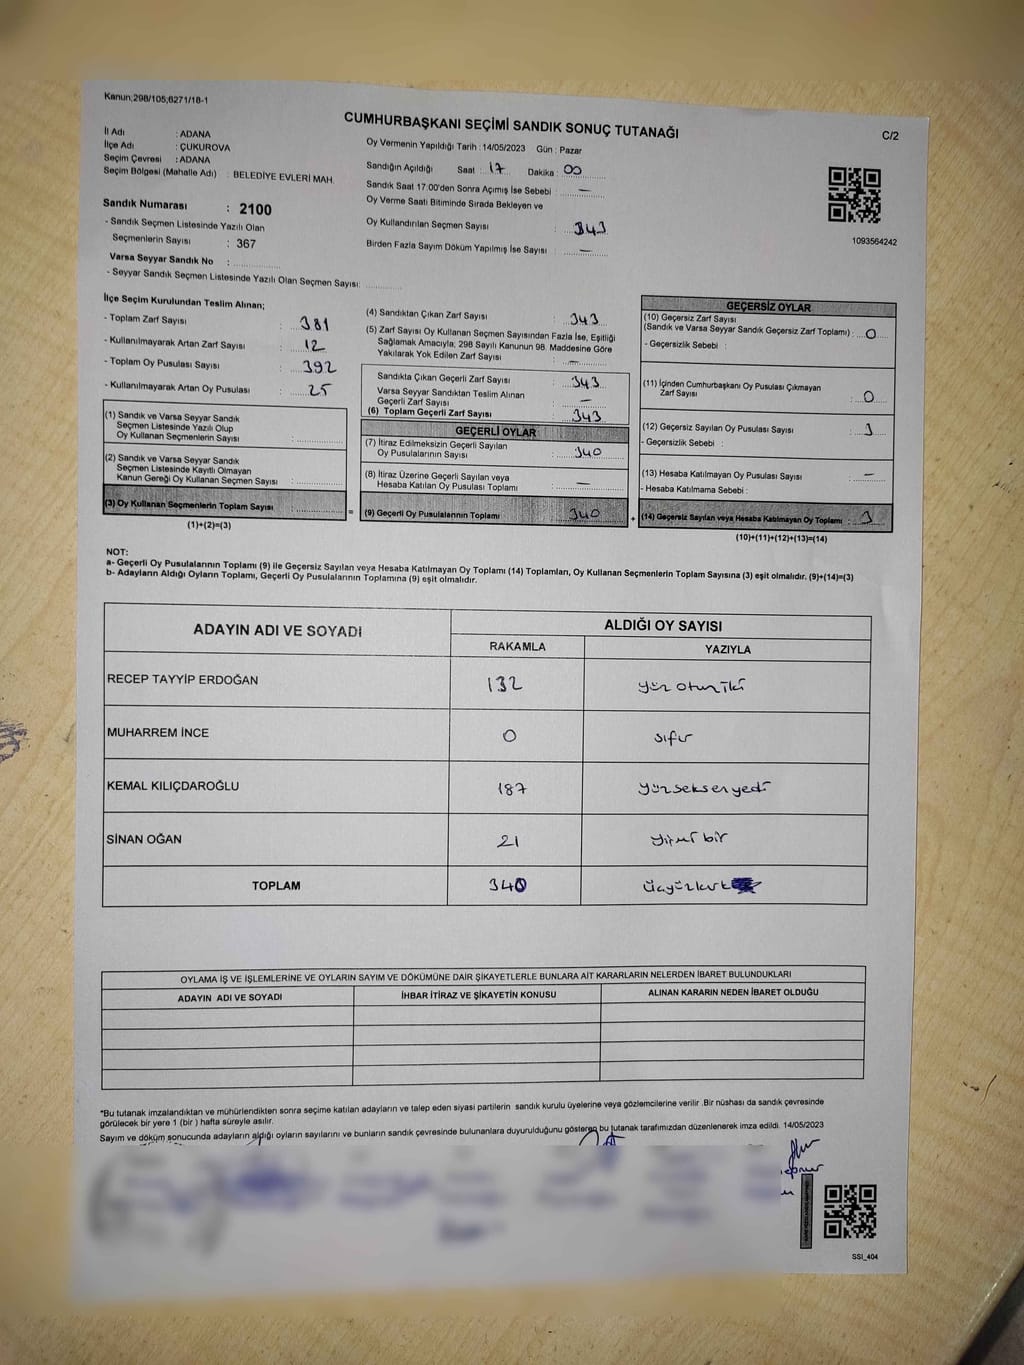 Kanun;298/105,6271/18-1
CUMHURBAŞKANI SEÇİMİ SANDIK SONUÇ TUTANAĞI
C/2
İl Adı : ADANA
İlçe Adı : ÇUKUROVA
Seçim Çevresi : ADANA
Seçim Bölgesi (Mahalle Adı) : BELEDİYE EVLERİ MAH.
Sandık Numarası : 2100
- Sandık Seçmen Listesinde Yazılı Olan
Seçmenlerin Sayısı : 367
Varsa Seyyar Sandık No :
- Seyyar Sandık Seçmen Listesinde Yazılı Olan Seçmen Sayısı:
Oy Vermenin Yapıldığı Tarih : 14/05/2023 Gün : Pazar
Sandığın Açıldığı Saat : 17 Dakika : 00
Sandık Saat 17:00'den Sonra Açımış İse Sebebi : —
Oy Verme Saati Bitiminde Sırada Bekleyen ve
Oy Kullandırılan Seçmen Sayısı : 343
Birden Fazla Sayım Döküm Yapılmış İse Sayısı : —
1093564242
İlçe Seçim Kurulundan Teslim Alınan;
- Toplam Zarf Sayısı : 381
- Kullanılmayarak Artan Zarf Sayısı : 12
- Toplam Oy Pusulası Sayısı : 392
- Kullanılmayarak Artan Oy Pusulası : 25
(1) Sandık ve Varsa Seyyar Sandık
Seçmen Listesinde Yazılı Olup
Oy Kullanan Seçmenlerin Sayısı :
(2) Sandık ve Varsa Seyyar Sandık
Seçmen Listesinde Kayıtlı Olmayan
Kanun Gereği Oy Kullanan Seçmen Sayısı :
(3) Oy Kullanan Seçmenlerin Toplam Sayısı :
(1)+(2)=(3)
(4) Sandıktan Çıkan Zarf Sayısı : 343
(5) Zarf Sayısı Oy Kullanan Seçmen Sayısından Fazla İse, Eşitliği
Sağlamak Amacıyla; 298 Sayılı Kanunun 98. Maddesine Göre
Yakılarak Yok Edilen Zarf Sayısı : —
Sandıkta Çıkan Geçerli Zarf Sayısı : 343
Varsa Seyyar Sandıktan Teslim Alınan
Geçerli Zarf Sayısı : —
(6) Toplam Geçerli Zarf Sayısı : 343
GEÇERLİ OYLAR
(7) İtiraz Edilmeksizin Geçerli Sayılan
Oy Pusulalarının Sayısı : 340
(8) İtiraz Üzerine Geçerli Sayılan veya
Hesaba Katılan Oy Pusulası Toplamı : —
= (9) Geçerli Oy Pusulalarının Toplamı : 340 +
GEÇERSİZ OYLAR
(10) Geçersiz Zarf Sayısı
(Sandık ve Varsa Seyyar Sandık Geçersiz Zarf Toplamı) : 0
- Geçersizlik Sebebi :
(11) İçinden Cumhurbaşkanı Oy Pusulası Çıkmayan
Zarf Sayısı : 0
(12) Geçersiz Sayılan Oy Pusulası Sayısı : 3
- Geçersizlik Sebebi :
(13) Hesaba Katılmayan Oy Pusulası Sayısı : —
- Hesaba Katılmama Sebebi :
(14) Geçersiz Sayılan veya Hesaba Katılmayan Oy Toplamı : 3
(10)+(11)+(12)+(13)=(14)
NOT:
a- Geçerli Oy Pusulalarının Toplamı (9) ile Geçersiz Sayılan veya Hesaba Katılmayan Oy Toplamı (14) Toplamları, Oy Kullanan Seçmenlerin Toplam Sayısına (3) eşit olmalıdır. (9)+(14)=(3)
b- Adayların Aldığı Oyların Toplamı, Geçerli Oy Pusulalarının Toplamına (9) eşit olmalıdır.
ADAYIN ADI VE SOYADI
ALDIĞI OY SAYISI
RAKAMLA YAZIYLA
RECEP TAYYİP ERDOĞAN 132 yüz otuz iki
MUHARREM İNCE 0 sıfır
KEMAL KILIÇDAROĞLU 187 yüzseksenyedi
SİNAN OĞAN 21 yirmi bir
TOPLAM 340 üçyüzkırk
OYLAMA İŞ VE İŞLEMLERİNE VE OYLARIN SAYIM VE DÖKÜMÜNE DAİR ŞİKAYETLERLE BUNLARA AİT KARARLARIN NELERDEN İBARET BULUNDUKLARI
ADAYIN ADI VE SOYADI İHBAR İTİRAZ VE ŞİKAYETİN KONUSU ALINAN KARARIN NEDEN İBARET OLDUĞU
*Bu tutanak imzalandıktan ve mühürlendikten sonra seçime katılan adayların ve talep eden siyasi partilerin sandık kurulu üyelerine veya gözlemcilerine verilir .Bir nüshası da sandık çevresinde
görülecek bir yere 1 (bir ) hafta süreyle asılır.
Sayım ve döküm sonucunda adayların aldığı oyların sayılarını ve bunların sandık çevresinde bulunanlara duyurulduğunu gösteren bu tutanak tarafımızdan düzenlenerek imza edildi. 14/05/2023
SSI_404